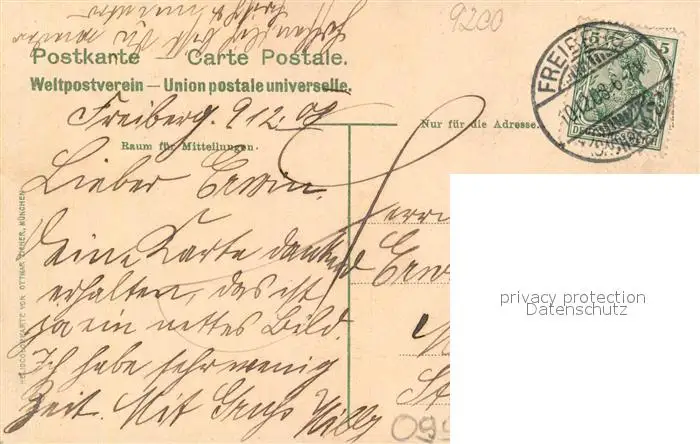 9200
Postkarte Carte Postale.
Weltpostverein – Union postale universelle.
Freiberg. 9 12. 08
Nur für die Adresse.
Raum für Mitteilungen.
FREIBERG
5
10.12.08.6-7
Lieber Erwin.
Deine Karte dankend
erhalten, das ist
ja ein nettes Bild.
Ich habe sehr wenig
Zeit. Mit Gruß Willy
HELIOCOLORKARTE VON OTTMAR ZIEHER, MÜNCHEN
privacy protection
Datenschutz